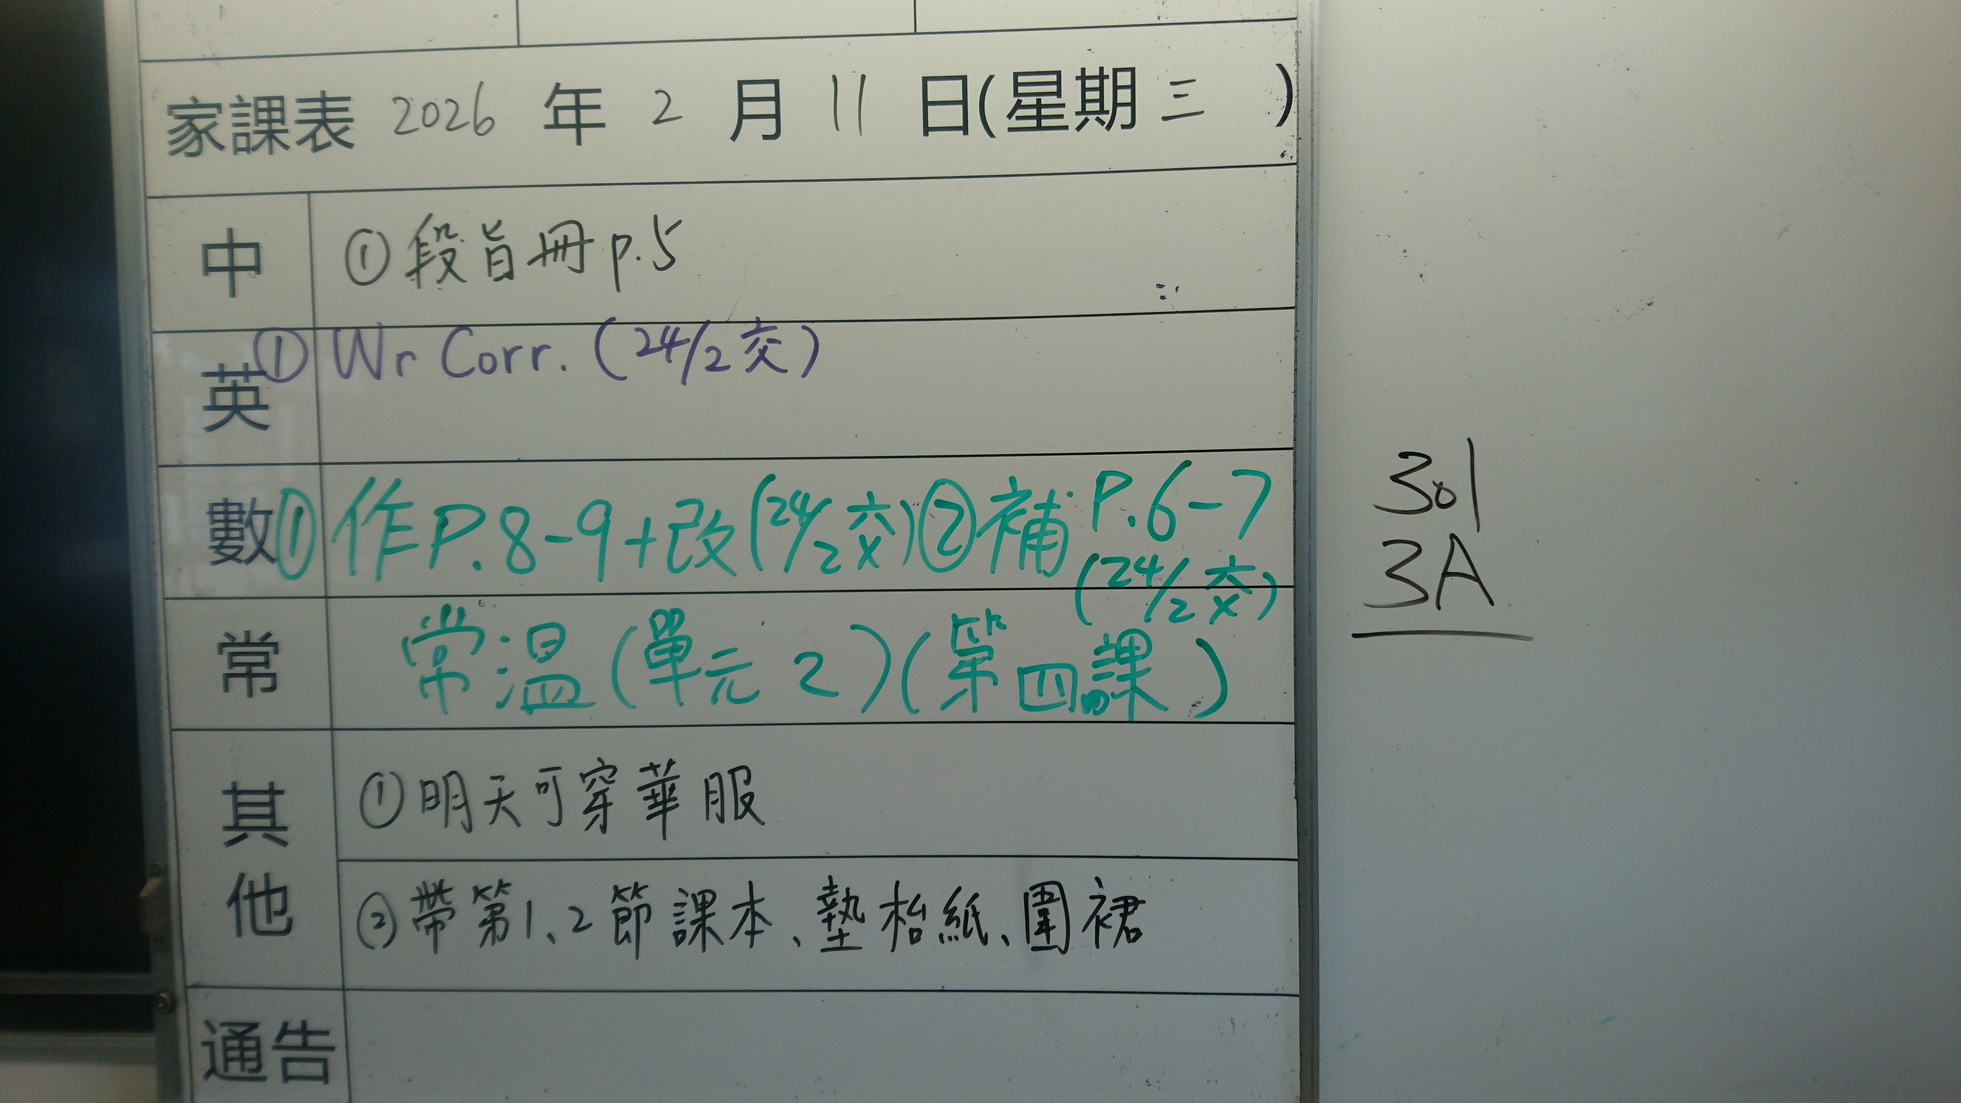 家課表 2026 年 2 月 11 日(星期三 )
中 ①段旨冊 p.5
英 ① Wr Corr. (24/2 交)
數 ① 作 P.8-9+改 (24/2 交) ② 補 P.6-7
(24/2 交)
常 常溫 (單元 2) (第四課)
其他 ①明天可穿華服
②帶第1、2節課本、墊枱紙、圍裙
通告
301
3A